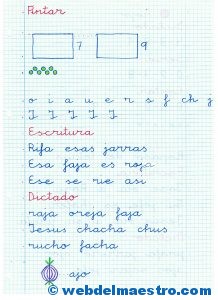 Pintar
7 9
o i a u e r n s f ch j
J J J J J
Escritura
Rifa esas jarras
Esa faja es roja
Ese se rie asi
Dictado
raja oreja faja
Jesus chacha chus
rucho facha
ajo
© webdelmaestro.com